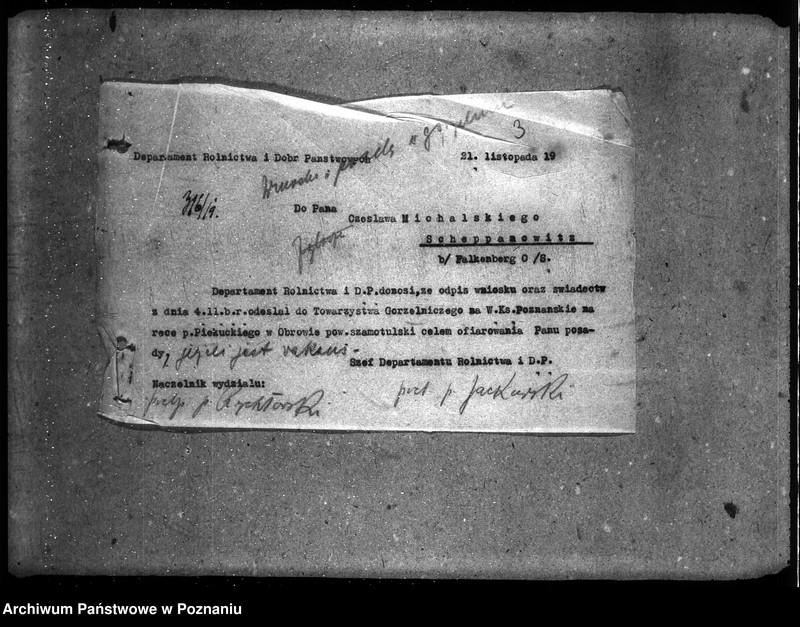 3
Departament Rolnictwa i Dobr Panstwowych 21. listopada 19
316/19.
Do Pana
Czeslawa Michalskiego
Scheppanowitz
b/ Falkenberg O/S.
Departament Rolnictwa i D.P.donosi,ze odpis wniosku oraz swiadectw
z dnia 4.11.b.r.odeslal do Towarzystwa Gorzelniczego na W.Ks.Poznanskie na
rece p.Piekuckiego w Obrowie pow.szamotulski celem ofiarowania Panu posa-
dy, jeżeli jest vakans.
Szef Departamentu Rolnictwa i D.P.
Naczelnik wydzialu:
podp. p. Rychłowski
pod p. Jackowski
Archiwum Państwowe w Poznaniu